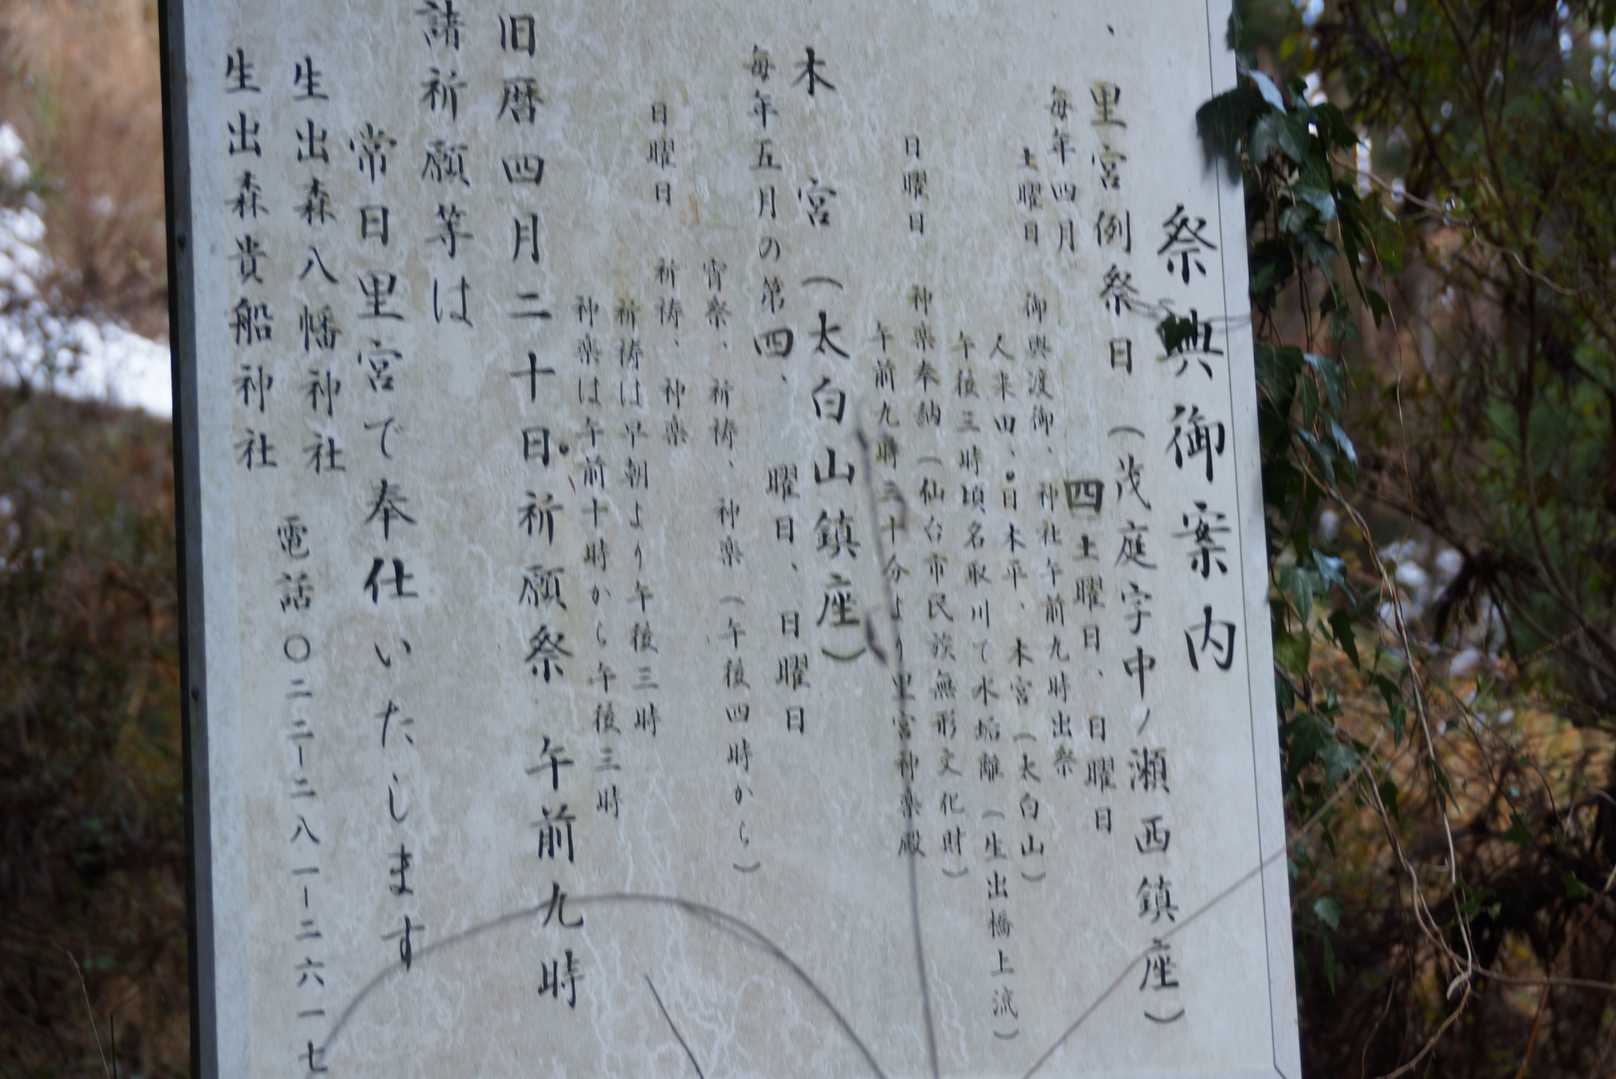 祭典御案内
里宮例祭日（茂庭字中ノ瀬西鎮座）
毎年四月 四土曜日、日曜日
土曜日 御輿渡御、神社午前九時出祭
人来田、日本平、本宮（太白山）
午後三時頃名取川て水垢離（生出橋上流）
日曜日 神楽奉納（仙台市民族無形文化財）
午前九時三十分より里宮神楽殿
本宮（太白山鎮座）
毎年五月の第四、曜日、日曜日
宵祭、祈祷、神楽（午後四時から）
日曜日 祈祷、神楽
祈祷は早朝より午後三時
神楽は午前十時から午後三時
旧暦四月二十日祈願祭 午前九時
諸祈願等は
常日里宮で奉仕いたします
生出森八幡神社
生出森貴船神社
電話〇二二ー二八一ー二六一七